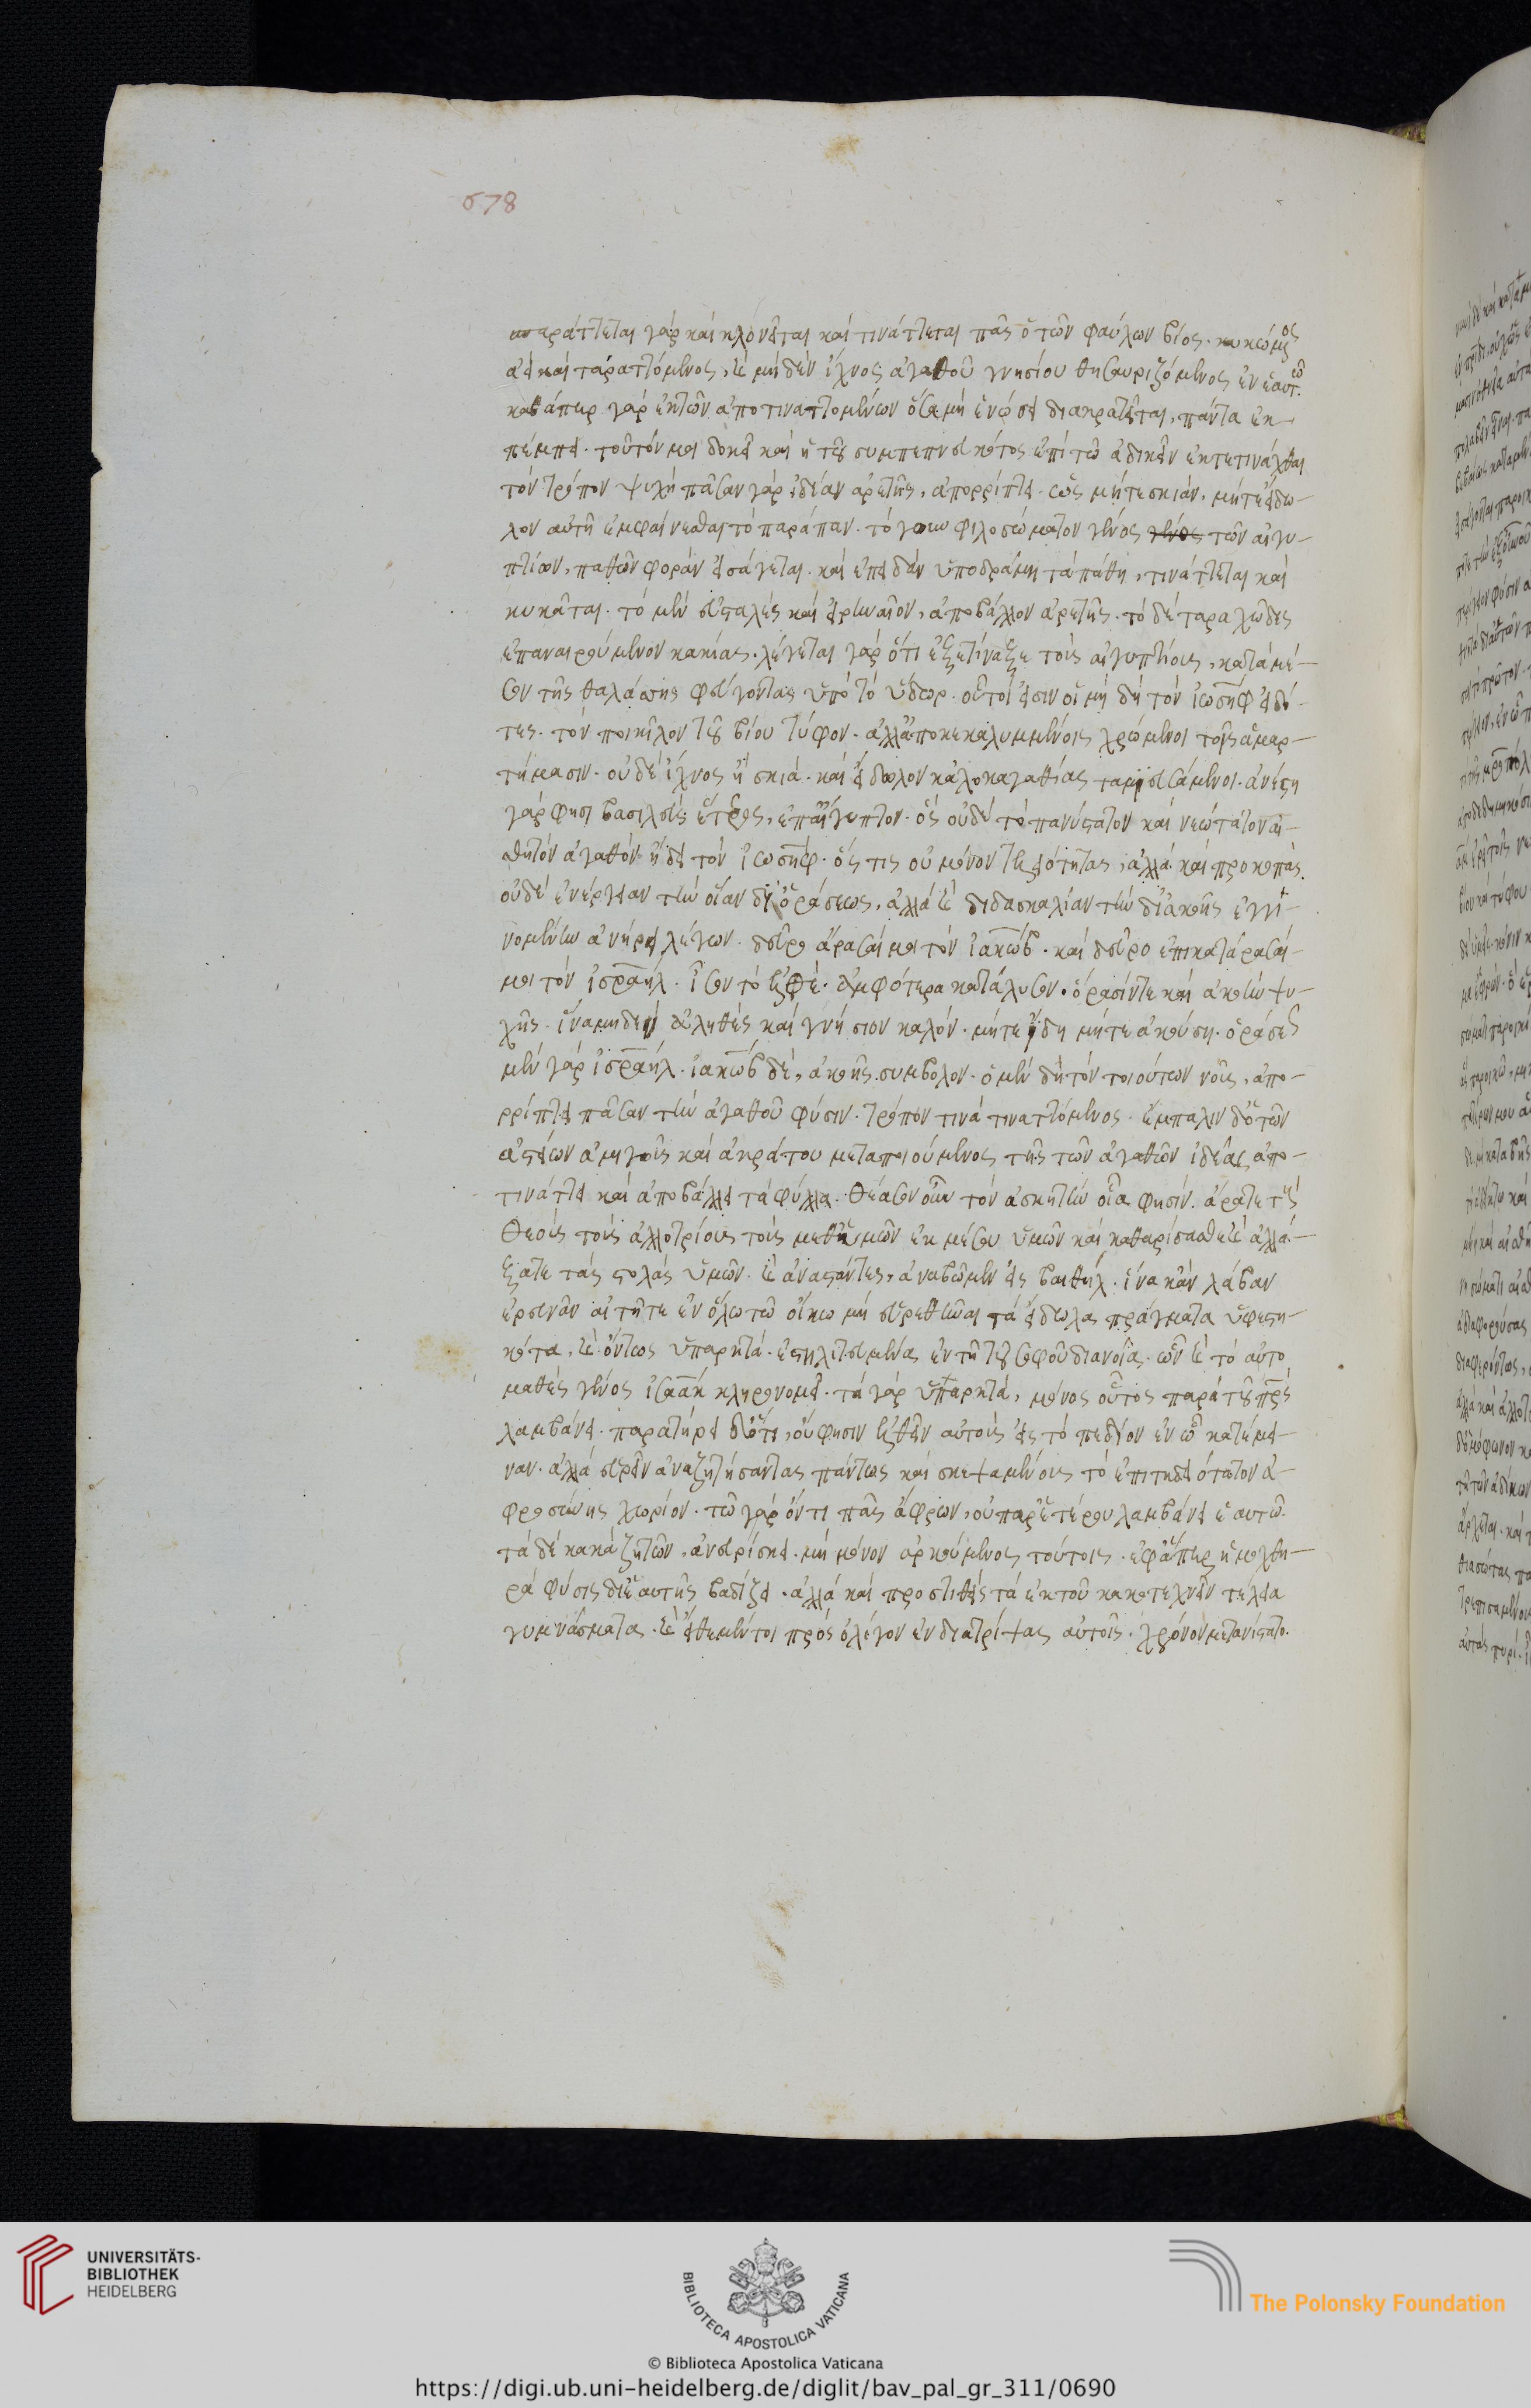 678
ταράττεται γάρ καί κλονεῖται καί τινάττεται πᾶς ὁ τῶν φαύλων βίος. κυκώμενος
ἀεί καί ταραττόμενος, καί μηδέν ἴχνος ἀγαθοῦ γνησίου θησαυριζόμενος ἐν ἑαυτῶ.
καθάπερ γάρ ἐκ τῶν ἀποτιναττομένων ὅσα μή ἑνώσει διακρατεῖται, πάντα ἐκ
πέμπει. τοῦτόν μοι δοκεῖ καί ἡ τοῦ συμπεπνευκότος ἐπί τῶ ἀδικεῖν ἐκτετινάχθαι
τόν τρόπον ψυχή πᾶσαν γάρ ἰδέαν ἀρετῆς, ἀπορρίπτει. ὡς μήτε σκιάν, μήτε εἴδω-
λον αὐτῆ ἐμφαίνεσθαι τό παράπαν. τό γουν φιλοσώματον γένος τῶν αἰγυ-
πτίων, παθῶν φοράν εἰσάγεται. καί ἐπειδάν ὑποδράμη τά πάθη, τινάττεται καί
κυκᾶται. τό μέν εὐσταλές καί εἰρηναῖον, ἀποβάλλον ἀρετῆς. τό δέ ταραχῶδες
ἐπαναιρούμενον κακίας. λέγεται γάρ ὅτι ἐξετίναξε τούς αἰγυπτίους, κατά μέ-
σον τῆς θαλάσσης φεύγοντας ὑπό τό ὕδωρ. οὗτοί εἰσιν οἱ μή δή τόν ἰωσήφ εἰδό-
τες. τόν ποικίλον τοῦ βίου τύφον. ἀλλ' ἀποκεκαλυμμένοις χρώμενοι τοῖς ἁμαρ-
τήμασιν. οὐδέ ἴχνος ἤ σκιά. καί εἴδωλον καλοκαγαθίας ταμιευσάμενοι. ἀνέστη
γάρ φησι βασιλεύς ἕτερος, ἐπ' αἴγυπτον. ὅς οὐδέ τό πανύστατον καί νεώτατον αἰ-
σθητόν ἀγαθόν ἤδει τόν ἰωσήφ. ὅς τις οὐ μόνον τελειότητας, ἀλλά καί προκοπάς.
οὐδέ ἐνέργειαν τήν οἵαν δι' ὁράσεως, ἀλλά καί διδασκαλίαν τήν δι' ἀκοῆς ἐγγι-
νομένην ἀνήρει λέγων. δεῦρο ἄρασαί μοι τόν ἰακώβ. καί δεῦρο ἐπικατάρασαί
μοι τόν ἰσραήλ. ἴσον τό ἐξῆς. ἀμφότερα κατάλυσον. ὅρασίν τε καί ἀκοήν ψυ-
χῆς. ἵνα μηδέν ἀληθές καί γνήσιον καλόν. μήτε ἴδη μήτε ἀκούση. ὁράσεως
μέν γάρ ἰσραήλ. ἰακώβ δέ, ἀκοῆς. συμβολον. ὁ μέν δή τόν τοιούτων νοῦς, ἀπο-
ρρίπτει πᾶσαν τήν ἀγαθοῦ φύσιν. τρόπον τινά τιναττόμενος. ἔμπαλιν δ' ὁ τῶν
ἀστείων ἀμιγοῦς καί ἀκράτου μεταποιούμενος τῆς τῶν ἀγαθῶν ἰδέας ἀπο-
τινάττει καί ἀποβάλλει τά φύλλα. θέασον οὖν τόν ἀσκητήν οἷα φησίν. ἄρατε τούς
θεούς τούς ἀλλοτρίους τούς μεθ' ὑμῶν ἐκ μέσου ὑμῶν καί καθαρίσασθε καί ἀλλά-
ξατε τάς στολάς ὑμῶν. καί ἀναστάντες, ἀναβῶμεν εἰς βαιθήλ. ἵνα κἄν λάβαν
ἐρευνᾶν αἰτῆται ἐν ὅλω τῶ οἴκω μή εὑρεθῶσι τά εἴδωλα πράγματα ὑφεστη-
κότα, καί ὄντως ὑπαρκτά. ἐστηλιτευμένα ἐν τῆ τοῦ σοφοῦ διανοία. ὧν καί τό αὐτο
μαθές γένος ἰσαάκ κληρονομεῖ. τά γάρ ὑπαρκτά, μόνος οὗτος παρά τοῦ πρς
λαμβάνει. παρατήρει διότι, οὔ φησιν ἐλθεῖν αὐτούς εἰς τό πεδίον ἐν ὧ κατέμει-
ναν. ἀλλά εὑρεῖν ἀναζητήσαντας πάντως καί σκεψαμένους τό ἐπιτηδειότατον ἀ-
φροσύνης χωρίον. τῶ γάρ ὄντι πᾶς ἄφρων, οὐ παρ' ἑτέρου λαμβάνει ἑαυτῶ.
τά δέ κακά ζητῶν, ἀνευρίσκει. μή μόνον ἀρκούμενος τούτοις. ἐφ' ἅπερ ἡ μοχθη-
ρά φύσις δι' ἑαυτῆς βαδίζει. ἀλλά καί προστιθείς τά ἐκ τοῦ κακοτεχνεῖν τέλεια
γυμνάσματα. καί εἴθε μέντοι πρός ὀλίγον ἐνδιατρίψας αὐτοῖς. χρόνον μετανίστατο.
UNIVERSITÄTS-
BIBLIOTHEK
HEIDELBERG
BIBLIOTECA APOSTOLICA VATICANA
The Polonsky Foundation
© Biblioteca Apostolica Vaticana
https://digi.ub.uni-heidelberg.de/diglit/bav_pal_gr_311/0690